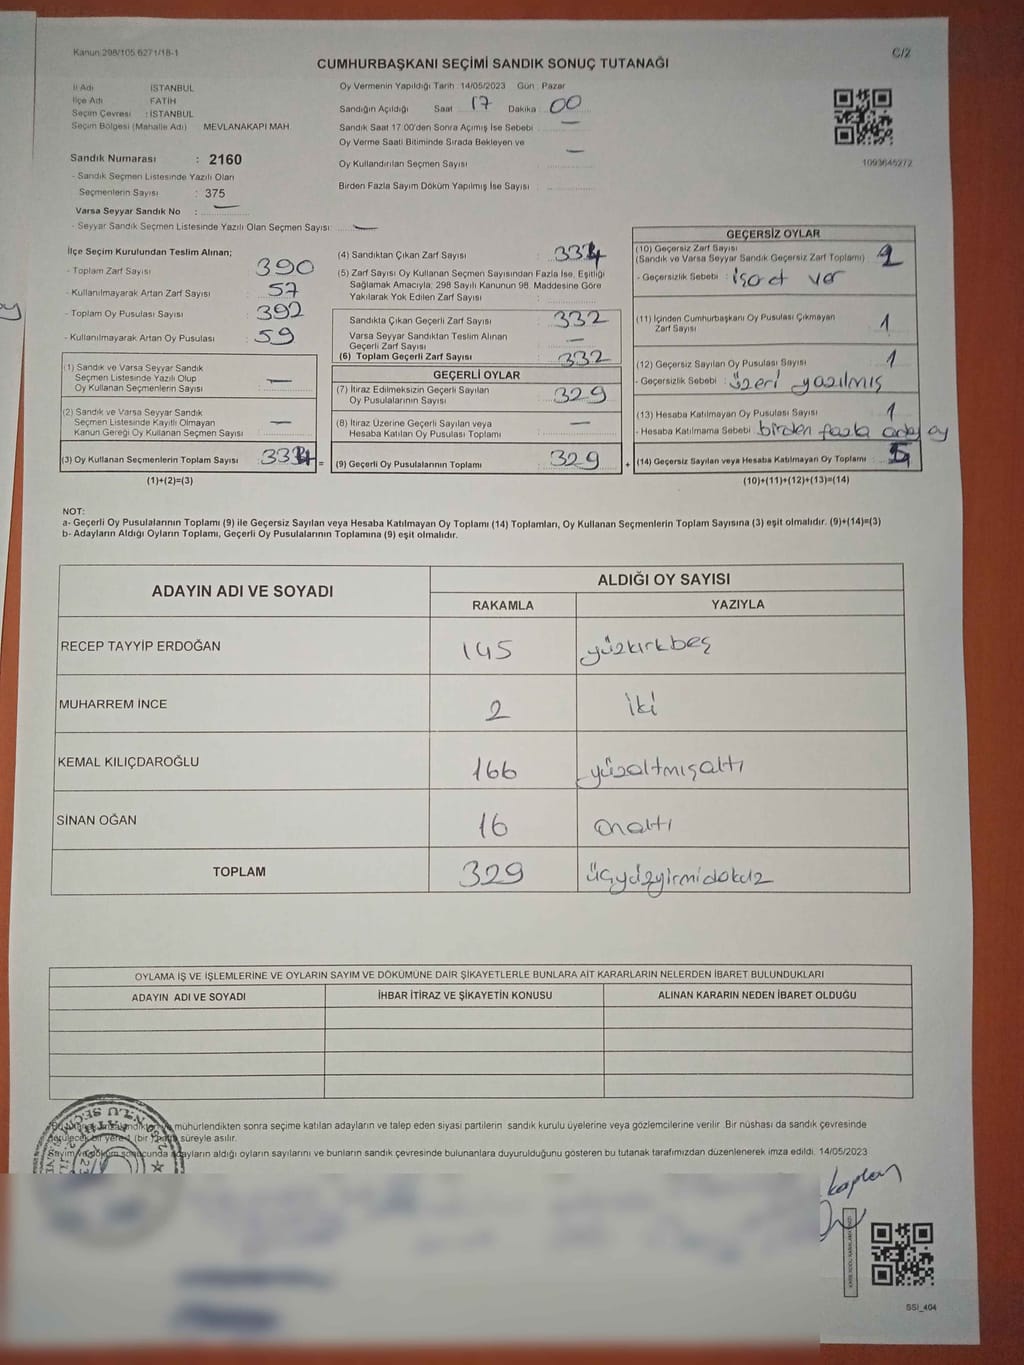 Kanun 298/105 6271/18-1
C/2
CUMHURBAŞKANI SEÇİMİ SANDIK SONUÇ TUTANAĞI
İl Adı : İSTANBUL
İlçe Adı : FATİH
Seçim Çevresi : İSTANBUL
Seçim Bölgesi (Mahalle Adı) MEVLANAKAPI MAH.
Sandık Numarası : 2160
- Sandık Seçmen Listesinde Yazılı Olan
Seçmenlerin Sayısı : 375
Varsa Seyyar Sandık No : —
- Seyyar Sandık Seçmen Listesinde Yazılı Olan Seçmen Sayısı: —
Oy Vermenin Yapıldığı Tarih : 14/05/2023 Gün : Pazar
Sandığın Açıldığı Saat 17 Dakika 00
Sandık Saat 17.00'den Sonra Açılmış İse Sebebi : —
Oy Verme Saati Bitiminde Sırada Bekleyen ve
Oy Kullandırılan Seçmen Sayısı : —
Birden Fazla Sayım Döküm Yapılmış İse Sayısı :
1093645272
İlçe Seçim Kurulundan Teslim Alınan;
- Toplam Zarf Sayısı : 390
- Kullanılmayarak Artan Zarf Sayısı : 57
- Toplam Oy Pusulası Sayısı : 392
- Kullanılmayarak Artan Oy Pusulası : 59
(1) Sandık ve Varsa Seyyar Sandık
Seçmen Listesinde Yazılı Olup
Oy Kullanan Seçmenlerin Sayısı : —
(2) Sandık ve Varsa Seyyar Sandık
Seçmen Listesinde Kayıtlı Olmayan
Kanun Gereği Oy Kullanan Seçmen Sayısı : —
(3) Oy Kullanan Seçmenlerin Toplam Sayısı : 334 =
(1)+(2)=(3)
(4) Sandıktan Çıkan Zarf Sayısı : 334
(5) Zarf Sayısı Oy Kullanan Seçmen Sayısından Fazla İse, Eşitliği
Sağlamak Amacıyla; 298 Sayılı Kanunun 98. Maddesine Göre
Yakılarak Yok Edilen Zarf Sayısı :
Sandıkta Çıkan Geçerli Zarf Sayısı : 332
Varsa Seyyar Sandıktan Teslim Alınan
Geçerli Zarf Sayısı : —
(6) Toplam Geçerli Zarf Sayısı : 332
GEÇERLİ OYLAR
(7) İtiraz Edilmeksizin Geçerli Sayılan
Oy Pusulalarının Sayısı : 329
(8) İtiraz Üzerine Geçerli Sayılan veya
Hesaba Katılan Oy Pusulası Toplamı : —
(9) Geçerli Oy Pusulalarının Toplamı : 329 +
GEÇERSİZ OYLAR
(10) Geçersiz Zarf Sayısı
(Sandık ve Varsa Seyyar Sandık Geçersiz Zarf Toplamı) : 2
- Geçersizlik Sebebi : işaret var
(11) İçinden Cumhurbaşkanı Oy Pusulası Çıkmayan
Zarf Sayısı : 1
(12) Geçersiz Sayılan Oy Pusulası Sayısı : 1
- Geçersizlik Sebebi : üzeri yazılmış
(13) Hesaba Katılmayan Oy Pusulası Sayısı : 1
- Hesaba Katılmama Sebebi : birden fazla aday oy
(14) Geçersiz Sayılan veya Hesaba Katılmayan Oy Toplamı : 5
(10)+(11)+(12)+(13)=(14)
NOT:
a- Geçerli Oy Pusulalarının Toplamı (9) ile Geçersiz Sayılan veya Hesaba Katılmayan Oy Toplamı (14) Toplamları, Oy Kullanan Seçmenlerin Toplam Sayısına (3) eşit olmalıdır. (9)+(14)=(3)
b- Adayların Aldığı Oyların Toplamı, Geçerli Oy Pusulalarının Toplamına (9) eşit olmalıdır.
ADAYIN ADI VE SOYADI
ALDIĞI OY SAYISI
RAKAMLA YAZIYLA
RECEP TAYYİP ERDOĞAN 145 yüzkırkbeş
MUHARREM İNCE 2 iki
KEMAL KILIÇDAROĞLU 166 yüzaltmışaltı
SİNAN OĞAN 16 onaltı
TOPLAM 329 üçyüzyirmidokuz
OYLAMA İŞ VE İŞLEMLERİNE VE OYLARIN SAYIM VE DÖKÜMÜNE DAİR ŞİKAYETLERLE BUNLARA AİT KARARLARIN NELERDEN İBARET BULUNDUKLARI
ADAYIN ADI VE SOYADI İHBAR İTİRAZ VE ŞİKAYETİN KONUSU ALINAN KARARIN NEDEN İBARET OLDUĞU
mühürlendikten sonra seçime katılan adayların ve talep eden siyasi partilerin sandık kurulu üyelerine veya gözlemcilerine verilir. Bir nüshası da sandık çevresinde
bir yere 1 (bir) süreyle asılır.
adayların aldığı oyların sayılarını ve bunların sandık çevresinde bulunanlara duyurulduğunu gösteren bu tutanak tarafımızdan düzenlenerek imza edildi. 14/05/2023
kaplan
SSİ_404